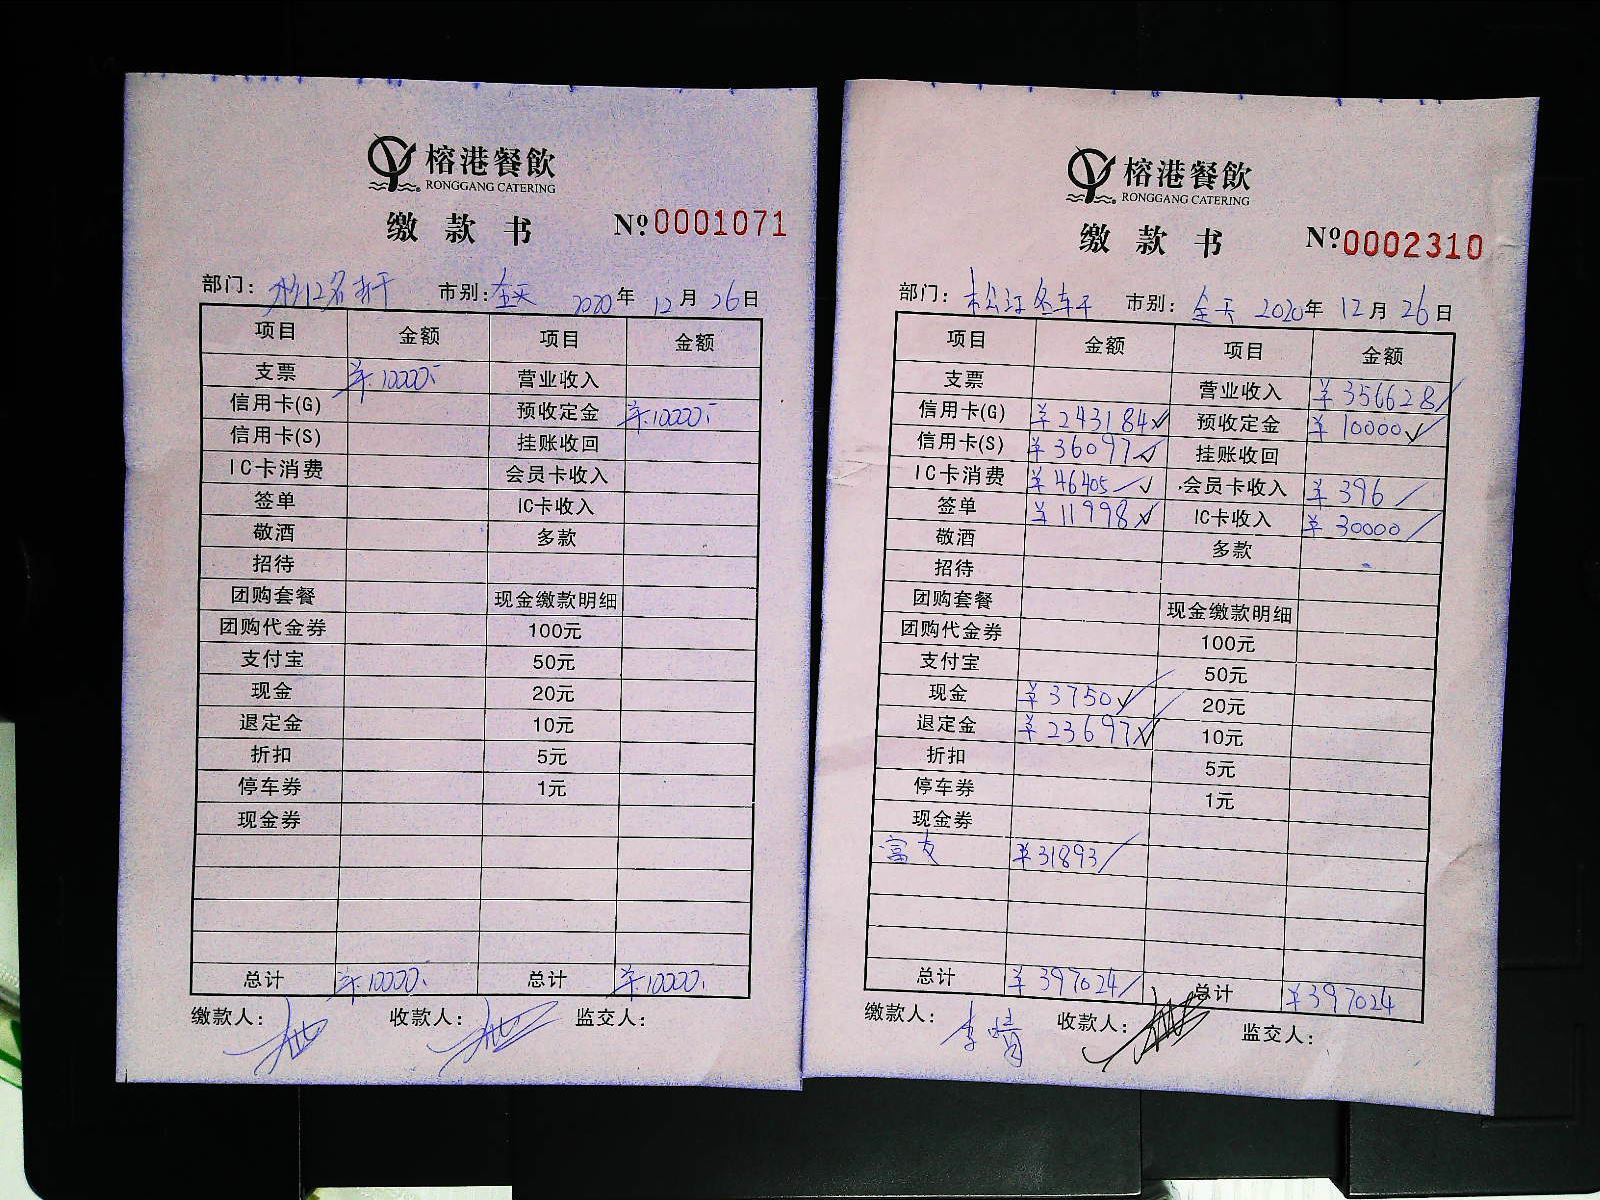 榕港餐飲
RONGGANG CATERING
缴款书 Nº 0001071
部门: 市别: 全天 2020年12月26日
项目 金额 项目 金额
支票 ¥10000. 营业收入
信用卡(G) 预收定金 ¥10000.
信用卡(S) 挂账收回
IC卡消费 会员卡收入
签单 IC卡收入
敬酒 多款
招待
团购套餐 现金缴款明细
团购代金券 100元
支付宝 50元
现金 20元
退定金 10元
折扣 5元
停车券 1元
现金券
总计 ¥10000. 总计 ¥10000.
缴款人: 收款人: 监交人:
榕港餐飲
RONGGANG CATERING
缴款书 Nº 0002310
部门: 松江 市别: 全天 2020年12月26日
项目 金额 项目 金额
支票 营业收入 ¥356628
信用卡(G) ¥243184 预收定金 ¥10000
信用卡(S) ¥36097 挂账收回
IC卡消费 ¥46405 会员卡收入 ¥396
签单 ¥11998 IC卡收入 ¥30000
敬酒 多款
招待
团购套餐 现金缴款明细
团购代金券 100元
支付宝 50元
现金 ¥3750 20元
退定金 ¥23697 10元
折扣 5元
停车券 1元
现金券
富友 ¥31893
总计 ¥397024 总计 ¥397024
缴款人: 李晴 收款人: 监交人: